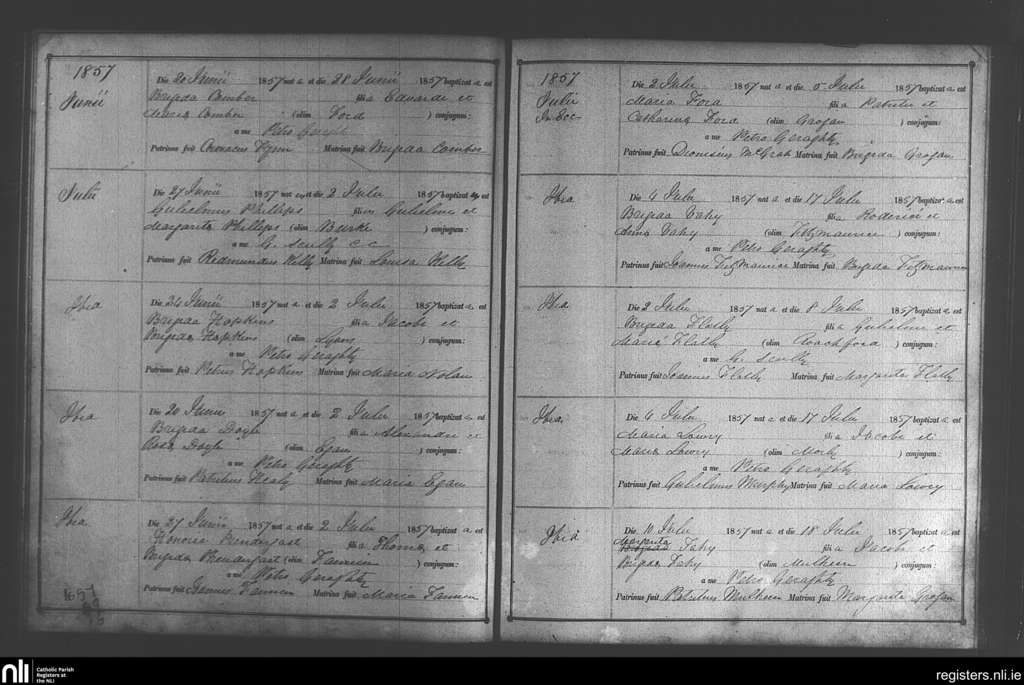 1857
Junii
Die 20 Junii 1857 nat a et die 28 Junii 1857 baptizat a est
Brigida Comber filia Edvardi et
Maria Comber (olim Ford ) conjugum:
a me Petro Geraghty
Patrinus fuit Flynn Matrina fuit Brigida Comber
Julii
Die 27 Junii 1857 nat us et die 2 Julii 1857 baptizat us est
Gulielmus Phillips filius Gulielmi et
Margarita Phillips (olim Burke ) conjugum:
a me G. Scully C C
Patrinus fuit Redmundus Kelly Matrina fuit Louisa Kelly
Ibid
Die 24 Junii 1857 nat a et die 2 Julii 1857 baptizat a est
Brigida Hopkins filia Jacobi et
Brigida Hopkins (olim Lyons ) conjugum:
a me Petro Geraghty
Patrinus fuit Petrus Hopkins Matrina fuit Maria Nolan
Ibid
Die 20 Junii 1857 nat a et die 2 Julii 1857 baptizat a est
Brigida Doyle filia Alexandri et
Rosa Doyle (olim Egan ) conjugum:
a me Petro Geraghty
Patrinus fuit Patritius Healy Matrina fuit Maria Egan
Ibid
Die 27 Junii 1857 nat a et die 2 Julii 1857 baptizat a est
Honoria Prendergast filia Thoma et
Brigida Prendergast (olim Fannen ) conjugum:
a me Petro Geraghty
Patrinus fuit Joannes Fannen Matrina fuit Maria Fannen
1857
Julii
Die 2 Julii 1857 nat a et die 5 Julii 1857 baptizat a est
Maria Ford filia Patritii et
Catharina Ford (olim Grogan ) conjugum:
a me Petro Geraghty
Patrinus fuit Dionisius McGrah Matrina fuit Brigida Grogan
Ibid
Die 4 Julii 1857 nat a et die 17 Julii 1857 baptizat a est
Brigida Fahy filia Roderici et
Anna Fahy (olim Fitzmaurice ) conjugum:
a me Petro Geraghty
Patrinus fuit Joannes Fitzmaurice Matrina fuit Brigida Fitzmaurice
Ibid
Die 2 Julii 1857 nat a et die 8 Julii 1857 baptizat a est
Brigida Flatly filia Gulielmi et
Maria Flatly (olim Roachford ) conjugum:
a me G. Scully
Patrinus fuit Joannes Flatly Matrina fuit Margarita Flatly
Ibid
Die 4 Julii 1857 nat a et die 17 Julii 1857 baptizat a est
Maria Lowry filia Jacobi et
Maria Lowry (olim Morly ) conjugum:
a me Petro Geraghty
Patrinus fuit Gulielmus Murphy Matrina fuit Maria Lowry
Ibid
Die 10 Julii 1857 nat a et die 18 Julii 1857 baptizat a est
Margarita
Brigida Fahy filia Jacobi et
Brigida Fahy (olim Mulkeen ) conjugum:
a me Petro Geraghty
Patrinus fuit Patritius Mulkeen Matrina fuit Margarita Grogan
nli
Catholic Parish
Registers at
the NLI
registers.nli.ie